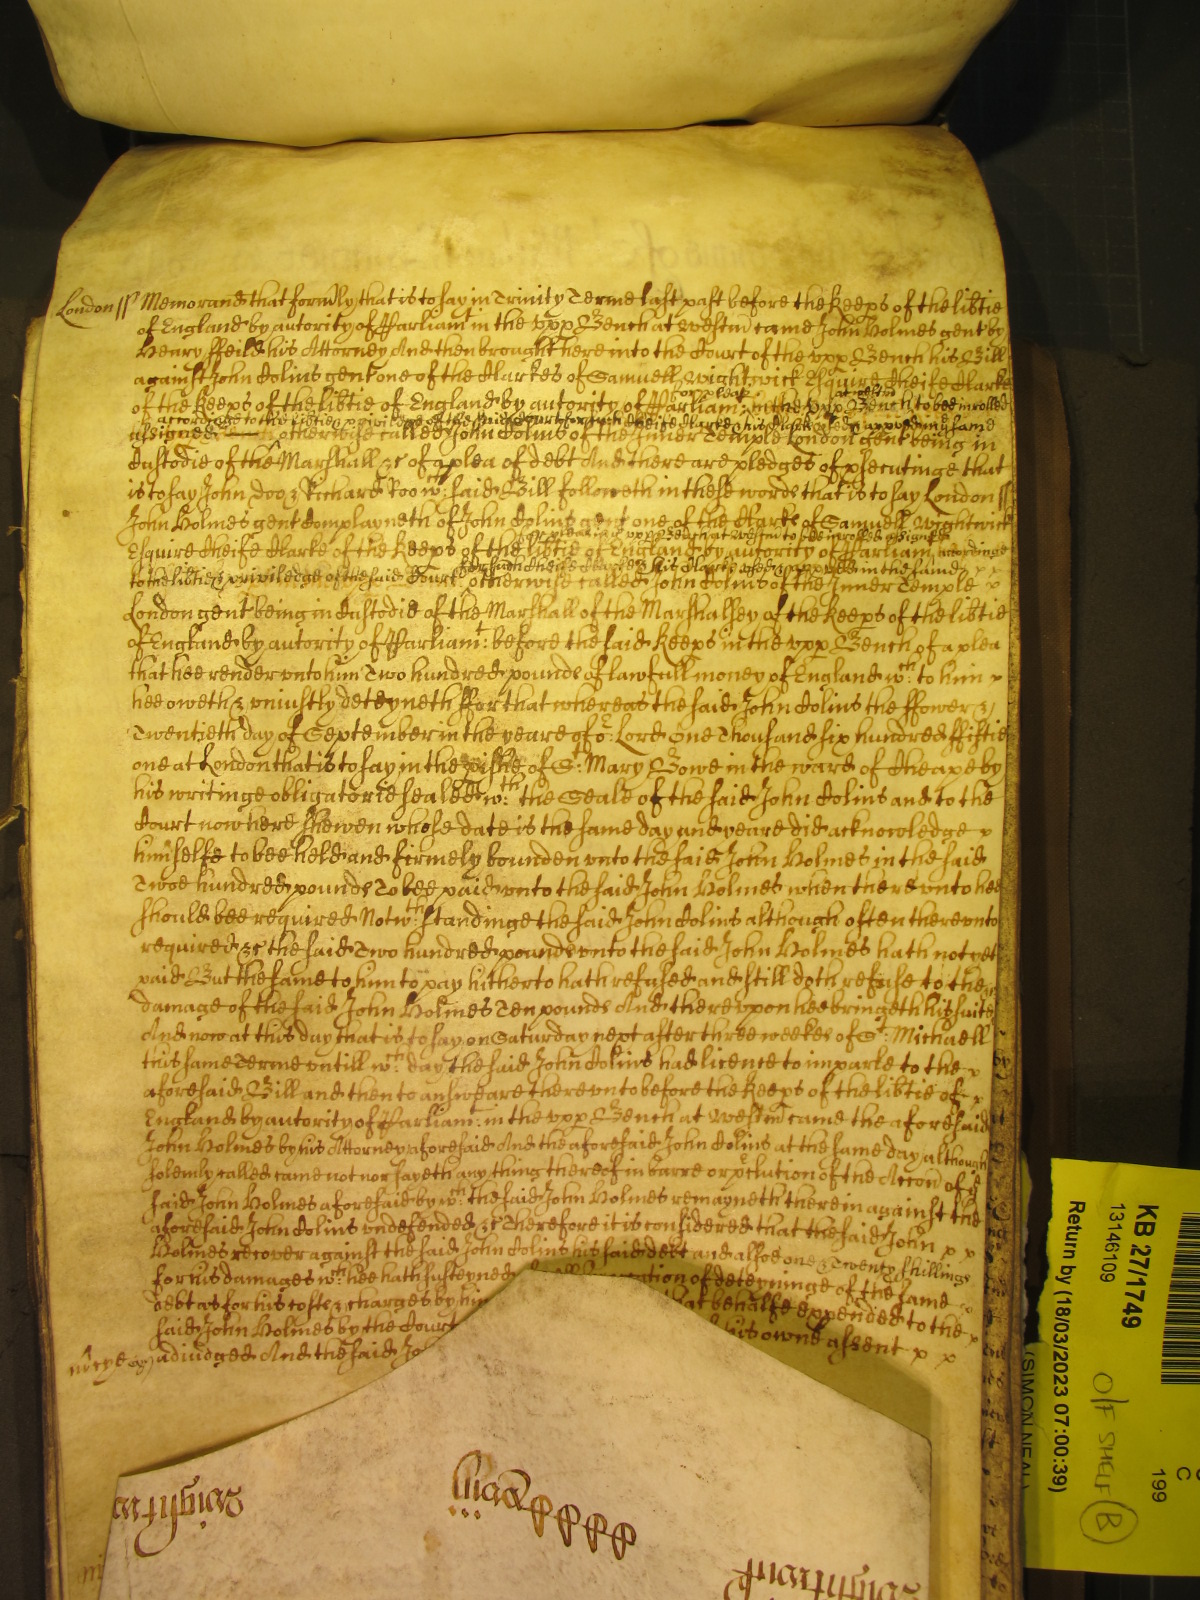 London ss Memorand that formly that is to say in Trinity Terme last past before the Keeps of the libtie
of England by autority of Parliamt in the upp Bench at Westm came John Holmes gent by
Henry ffeild his Attorney And then brought here into the Court of the upp Bench his Bill
against John Colins gent one of the Clarkes of Samuell Wightwick Esquire Cheife Clarke
of the Keeps of the libtie of England by autority of Parliam: in the upp Bench to bee inrolled
according to the libties & priviledge of the said Court for such Cheife Clarke his Clarkes used & approved in the same
assigned otherwise called John Colins of the Inner Temple London gent being in
Custodie of the Marshall &c of a plea of debt And there are pledges of psecutinge that
is to say John Doo & Richard Roo wch said Bill followeth in these words that is to say London ss
John Holmes gent Complayneth of John Colins gent one of the Clarks of Samuell Wightwick
for pleas in the upp Bench at Westm to bee inrolled assigned
Esquire Cheife Clarke of the Keeps of the libtie of England by autority of Parliam accordinge
for such Cheife Clarke & his Clarks used & approved in the same
to the libtie & priviledge of the said Court otherwise called John Colins of the Inner Temple
London gent being in Custodie of the Marshall of the Marshalsey of the Keeps of the libtie
of England by autority of Parliamt: before the said Keeps in the upp Bench of a plea
that hee render unto him Two hundred pounds of lawfull money of England wch: to him
hee oweth & uniustly deteyneth ffor that whereas the said John Colins the ffower &
Twentieth day of September in the yeare of or Lord One Thousand six hundred ffiftie
one at London that is to say in the pishe of St: Mary Bowe in the ward of Cheape by
his writinge obligatorie sealed wth: the Seale of the said John Colins and to the
Court now here shewen whose date is the same day and yeare did acknowledge
himselfe to bee held and firmely bounden unto the said John Holmes in the said
Twoe hundred pounds To bee paid unto the said John Holmes when thereunto hee
should bee required Notwthstandinge the said John Colins although often thereunto
required &c the said Two hundred pounds unto the said John Holmes hath not yet
paid But the same to him to pay hitherto hath refused and still doth refuse to the
damage of the said John Holmes Ten pounds And thereupon hee bringeth his suite
And now at this day that is to say on Saturday next after three weekes of St: Michaell
this same Terme untill wch: day the said John Colins had licence to imparle to the
aforesaid Bill and then to answeare thereunto before the Keeps of the libtie of
England by autority of Parliam: in the upp Bench at Westm came the aforesaid
John Holmes by his Attorney aforesaid And the aforesaid John Colins at the same day although
solemly called came not nor sayeth any thing thereof in barre or pclution of the Accon of the
said John Holmes aforesaid by wch: the said John Holmes remayneth therein against the
aforesaid John Colins undefended &c Therefore it is considered that the said John
Holmes recover against the said John Colins his said debt and alsoe one & Twenty shillings
for his damages wch: hee hath susteyned of deteyninge of the same
debt as for his costs & charges by him that behalfe expended to the
said John Holmes by the Court his owne assent
mcye adiudged And the said Jo
KB 27/1749
13146109
Return by (18/03/2023 07:00:39)
(SIMON NEAL)
O/F SHELF B
C
199